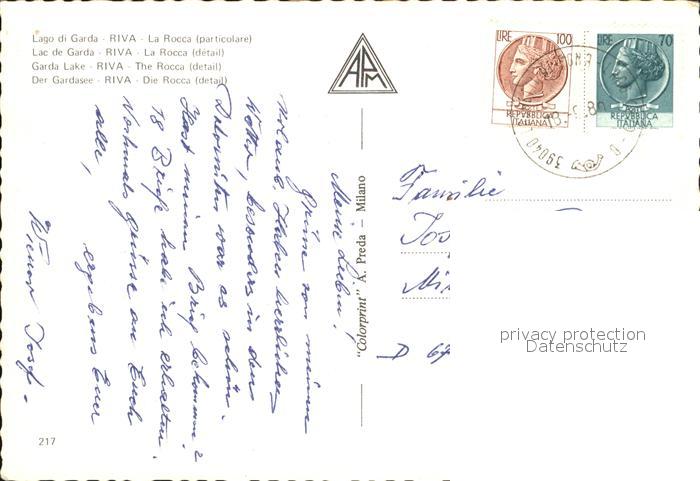 Lago di Garda - RIVA - La Rocca (particolare)
Lac de Garda - RIVA - La Rocca (détail)
Garda Lake - RIVA - The Rocca (detail)
Der Gardasee - RIVA - Die Rocca (detail)
APM
LIRE 100
REPVBBLICA
ITALIANA
LIRE 70
REPVBBLICA
ITALIANA
39040
Meine Lieben!
Grüße von meinem
Urlaub. Haben herrliches
Wetter, besonders in den
Dolomiten war es schön.
Hast meinen Brief bekommen?
18 Briefe habe ich erhalten.
Nochmals Grüsse an Euch
alle,
ergebens Euer
Josef.
"Colorprint" A. Preda - Milano
Familie
Jos
Mi
D
privacy protection
Datenschutz
217